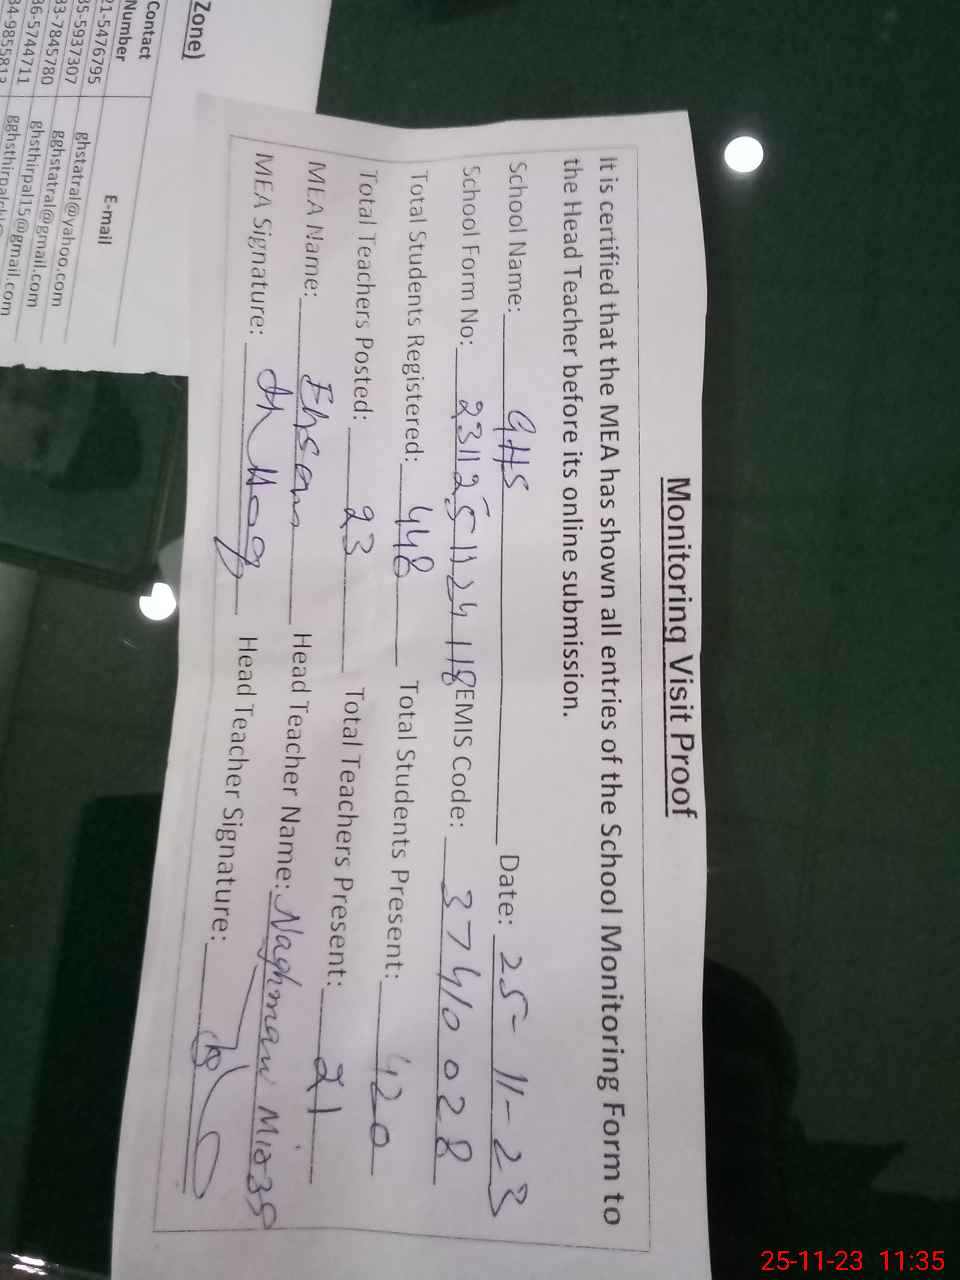 Monitoring Visit Proof
It is certified that the MEA has shown all entries of the School Monitoring Form to
the Head Teacher before its online submission.
School Name: GHS Date: 25-11-23
School Form No: 2311251124118 EMIS Code: 37410028
Total Students Registered: 448 Total Students Present: 420
Total Teachers Posted: 23 Total Teachers Present: 21
MEA Name: Ehsan Head Teacher Name: Naghman
MEA Signature: Head Teacher Signature:
Zone)
Contact
Number E-mail
21-5476795 ghstatral@yahoo.com
35-5937307 gghstatral@gmail.com
33-7845780 ghsthirpal15@gmail.com
36-5744711
25-11-23 11:35